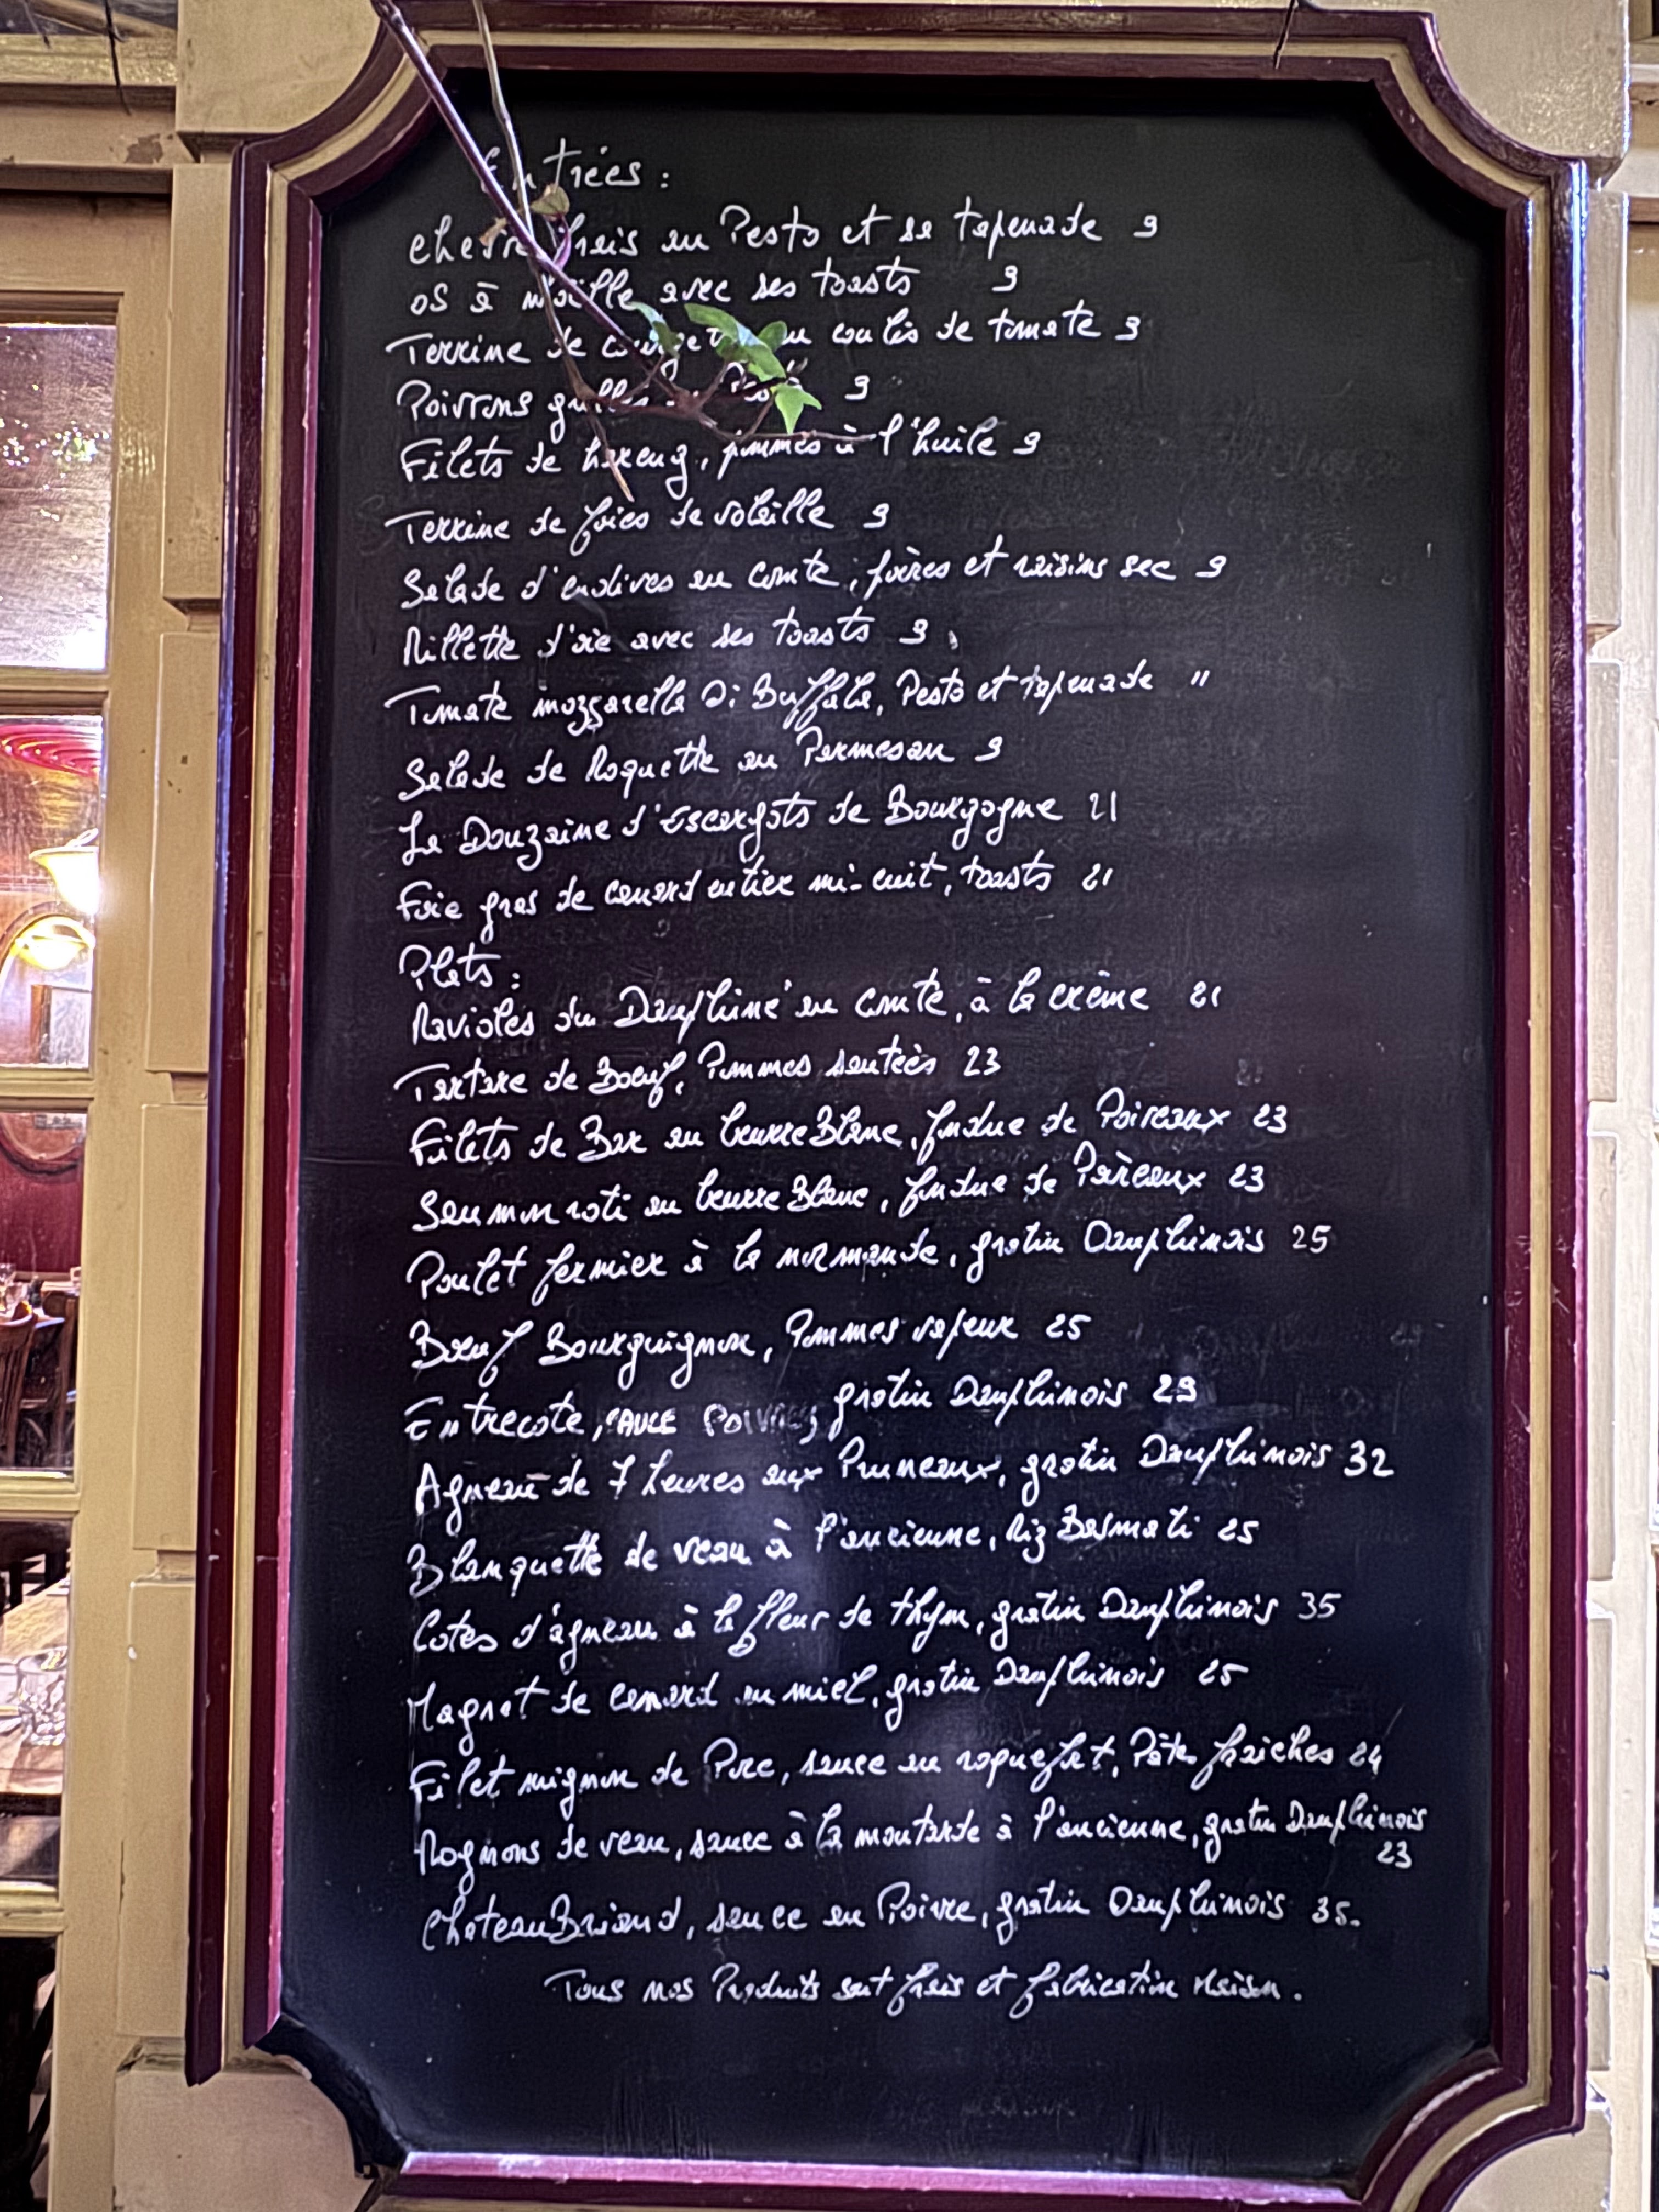 Entrées :
chèvre frais au Pesto et sa tapenade 9
os à moëlle avec ses toasts 9
Terrine de courgette au coulis de tomate 9
Poivrons grillés au Pesto 9
Filets de hareng, pommes à l'huile 9
Terrine de foies de volaille 9
Salade d'endives au comté, poires et raisins sec 9
Rillette d'oie avec ses toasts 9
Tomate mozzarella Di Buffala, Pesto et tapenade 11
Salade de Roquette au Parmesan 9
La Douzaine d'Escargots de Bourgogne 21
Foie gras de canard entier mi-cuit, toasts 21
Plats :
Ravioles du Dauphiné au comté, à la crème 21
Tartare de Boeuf, Pommes sautées 23
Filets de Bar au beurre Blanc, fondue de Poireaux 23
Saumon roti au beurre Blanc, fondue de Poireaux 23
Poulet fermier à la normande, gratin Dauphinois 25
Bœuf Bourguignon, Pommes vapeur 25
Entrecote, SAUCE POIVRE, gratin Dauphinois 29
Agneau de 7 heures aux Pruneaux, gratin Dauphinois 32
Blanquette de veau à l'ancienne, Riz Basmati 25
Cotes d'agneau à la fleur de thym, gratin Dauphinois 35
Magret de canard au miel, gratin Dauphinois 25
Filet mignon de Porc, sauce au roquefort, Pâtes fraiches 24
Rognons de veau, sauce à la moutarde à l'ancienne, gratin Dauphinois
23
ChateauBriand, sauce au Poivre, gratin Dauphinois 35.
Tous nos Produits sont frais et fabrication Maison.